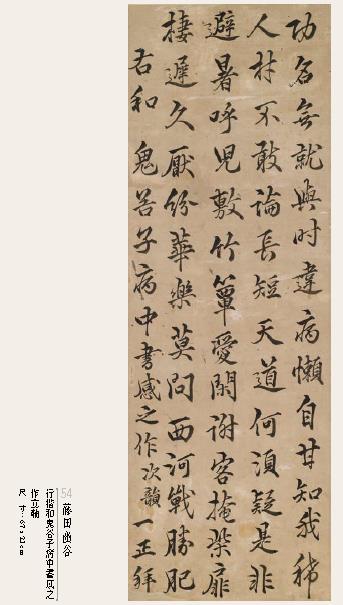 功名無就與時違病懶自甘知我稀
人材不敢論長短天道何須疑是非
避暑呼児敷竹簟愛閑謝客掩柴扉
棲遲久厭紛華樂莫問西河戰勝肥
右和鬼谷子病中書感之作次韻一正拜
54 藤田幽谷
行楷和鬼谷子病中書感之
作立軸
尺寸: